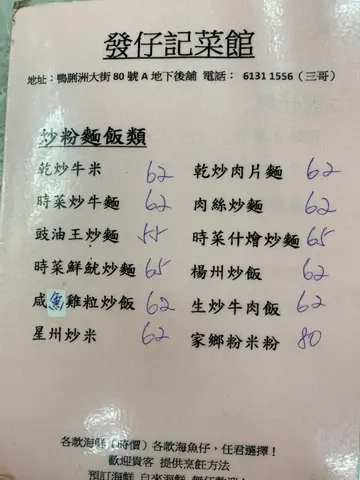 發仔記菜館
地址：鴨脷洲大街 80 號 A 地下後舖 電話： 6131 1556（三哥）
炒粉麵飯類
乾炒牛米 62 乾炒肉片麵 62
時菜炒牛麵 62 肉絲炒麵 62
豉油王炒麵 55 時菜什燴炒麵 65
時菜鮮魷炒麵 65 楊州炒飯 62
咸魚雞粒炒飯 62 生炒牛肉飯 62
星州炒米 62 家鄉粉米粉 80
各款海鮮（時價）各款海魚仔，任君選擇！
歡迎貴客 提供烹飪方法
預訂海鮮 自來海鮮